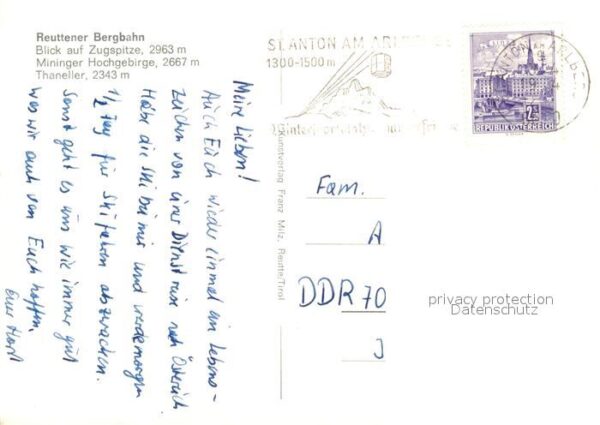 Reuttener Bergbahn
Blick auf Zugspitze, 2963 m
Mininger Hochgebirge, 2667 m
Thaneller, 2343 m
ST. ANTON AM ARLBERG
1300-1500m
REPUBLIK ÖSTERREICH
Kunstverlag Franz Milz, Reutte/Tirol
Meine Lieben!
Auch Euch wieder einmal ein Lebens-
zeichen von einer Dienstreise nach Österreich.
Habe die Ski bei mir und werde morgen
1/2 Tag für Skifahren abzwacken.
Sonst geht es uns wie immer gut
was wir auch von Euch hoffen.
Euer Horst
Fam.
A
DDR 70
J
privacy protection
Datenschutz